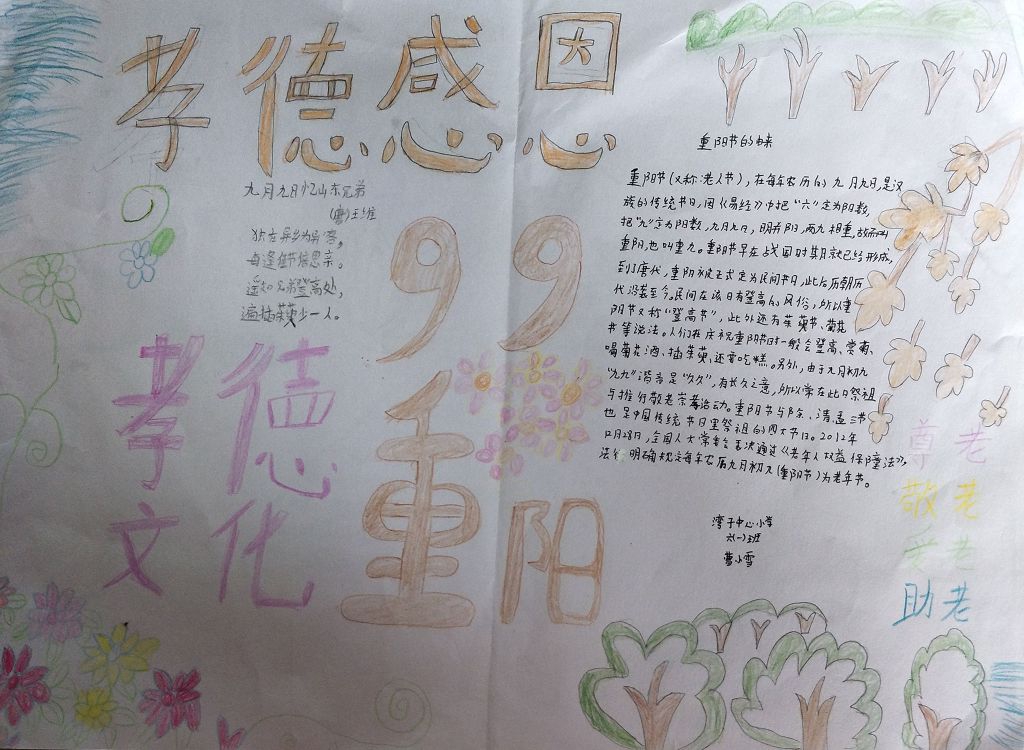 孝德感恩
九月九日忆山东兄弟
(唐)王维
独在异乡为异客,
每逢佳节倍思亲。
遥知兄弟登高处,
遍插茱萸少一人。
99
重阳
孝德
文化
重阳节的由来
重阳节(又称:老人节),在每年农历的九月九日,是汉
族的传统节日,因《易经》中把“六”定为阴数,
把“九”定为阳数,九月九日,日月并阳,两九相重,故而叫
重阳,也叫重九。重阳节早在战国时期就已经形成,
到了唐代,重阳被正式定为民间节日,此后历朝历
代沿袭至今。民间在该日有登高的风俗,所以重
阳节又称“登高节”,此外还有茱萸节、菊花
节等说法。人们在庆祝重阳节时一般会登高、赏菊、
喝菊花酒、插茱萸,还要吃糕。另外,由于九月初九
“九九”谐音是“久久”,有长久之意,所以常在此日祭祖
与推行敬老崇孝活动。重阳节与除、清、盂三节
也是中国传统节日里祭祖的四大节日。2012年
12月28日,全国人大常委会表决通过《老年人权益保障法》,
法 明确规定每年农历九月初九(重阳节)为老年节。
湾子中心小学
六(一)班
曹小雪
尊老
敬老
爱老
助老